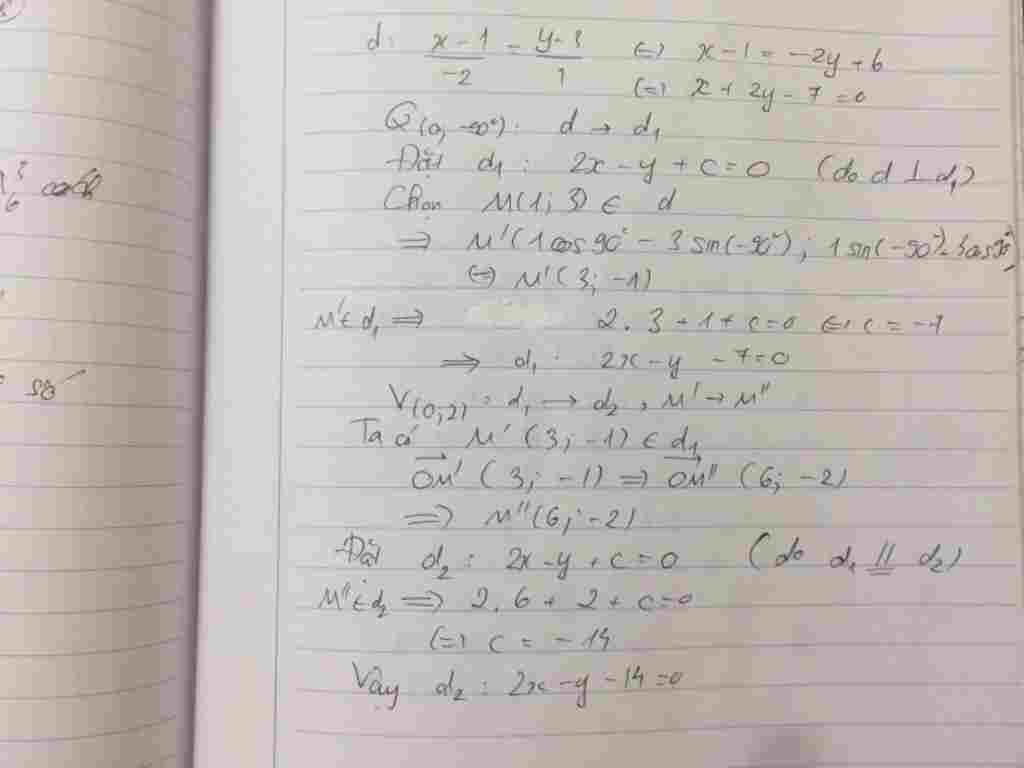 d: (x-1)/-2 = (y-3)/1 (=) x-1 = -2y+6
(=) x + 2y - 7 = 0
Q(0, -90°): d → d₁
Đặt d₁: 2x - y + c = 0 (do d ⊥ d₁)
Chọn M(1; 3) ∈ d
=> M'(1cos90° - 3sin(-90°); 1sin(-90°)+3cos90°)
(=) M'(3; -1)
M'∈d₁ => 2.3 + 1 + c = 0 (=) c = -7
=> d₁: 2x - y - 7 = 0
V(0;2): d₁ → d₂, M' → M''
Ta có M'(3; -1) ∈ d₁
OM'(3; -1) => OM''(6; -2)
=> M''(6; -2)
Đặt d₂: 2x - y + c = 0 (do d₁ // d₂)
M''∈d₂ => 2.6 + 2 + c = 0
(=) c = -14
Vậy d₂: 2x - y - 14 = 0